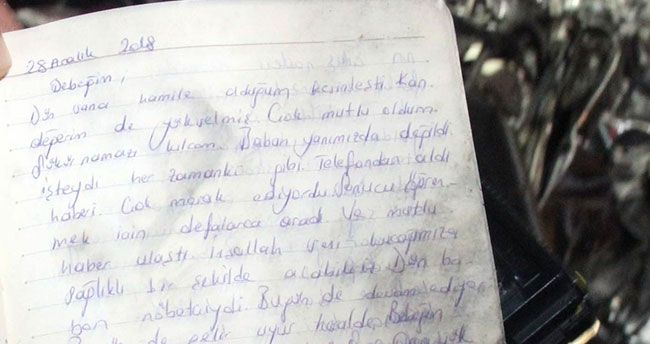 28 Aralık 2018
Bebeğim,
Dün sana hamile olduğum kesinleşti. Kan
değerin de yükselmiş. Çok mutlu oldum.
Şükür namazı kılcam. Baban yanımızda değildi
işteydi her zamanki gibi. Telefondan aldı
haberi. Çok merak ediyordu sonucu öğren-
mek için defalarca aradı ve mutlu
haber ulaştı. İnşallah seni kucağımıza
sağlıklı bir şekilde alabiliriz. Dün ba-
ban nöbetciydi. Bugün de
de gelir uyur Bebeğim